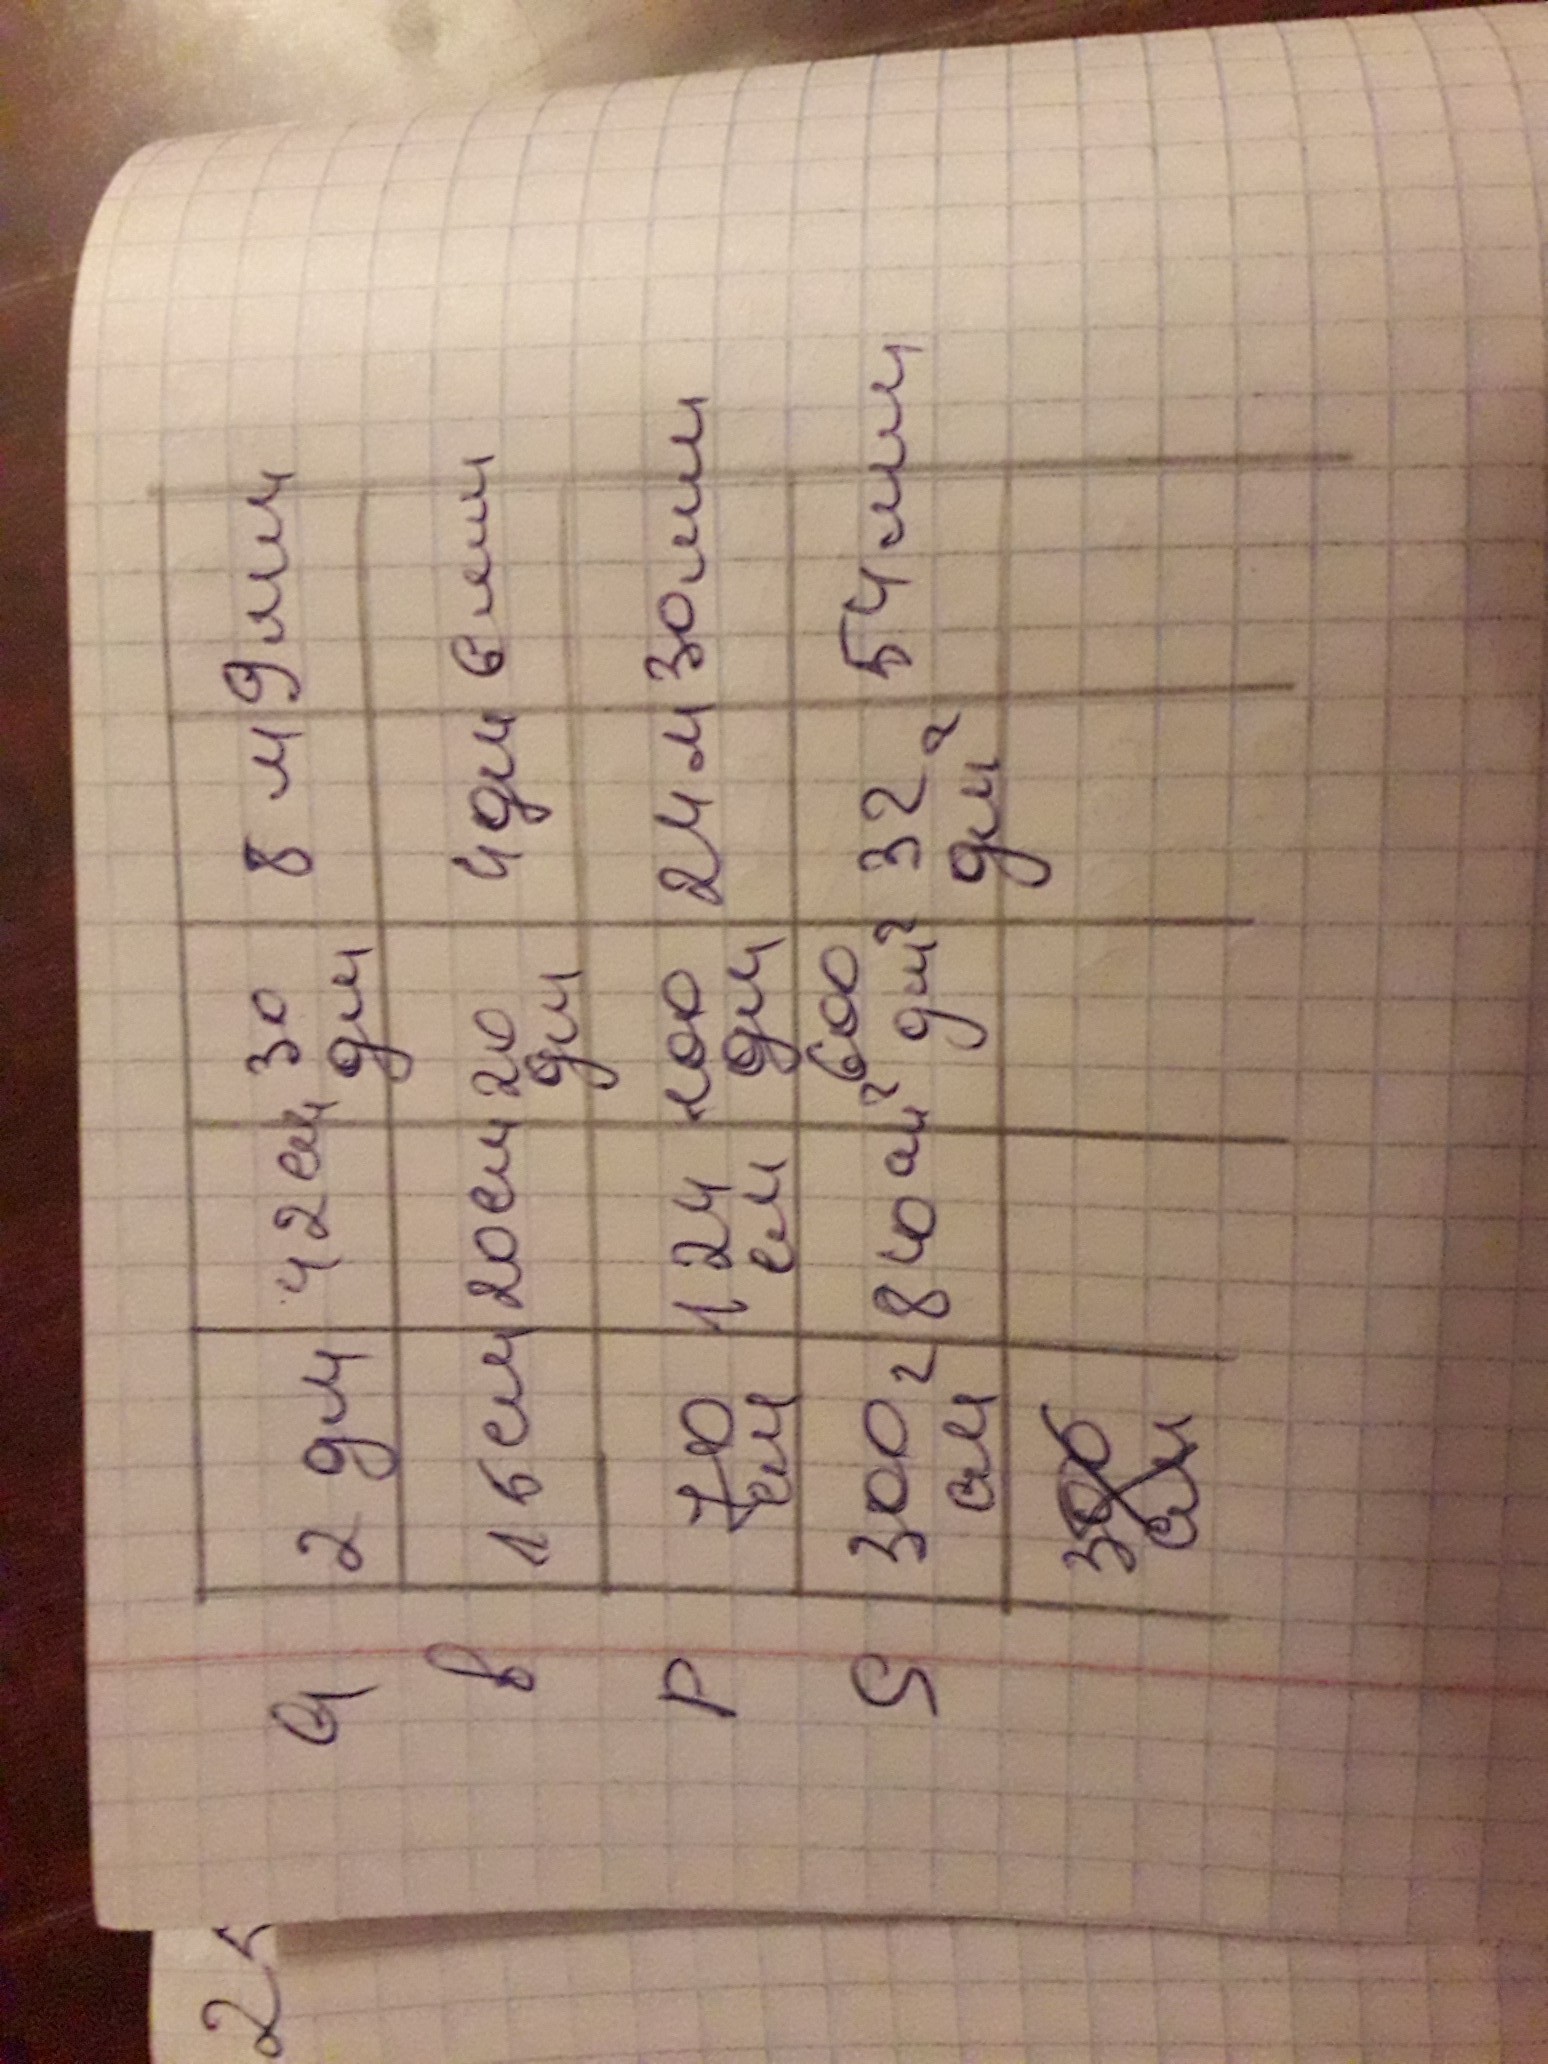 а 2 дм 42 см 30 дм 8 м 9 мм
в 15 см 20 см 20 дм 4 дм 6 мм
Р 70 см 124 см 100 дм 24 м 30 мм
S 300 см² 840 см² 600 дм² 32 дм² 54 мм
300 см